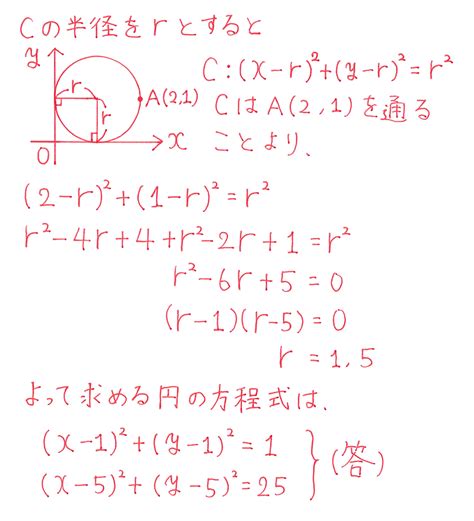 Cの半径をrとすると
y
r
r
A(2,1)
O
x
C:(x-r)²+(y-r)²=r²
CはA(2,1)を通る
ことより、
(2-r)²+(1-r)²=r²
r²-4r+4+r²-2r+1=r²
r²-6r+5=0
(r-1)(r-5)=0
r=1,5
よって求める円の方程式は、
(x-1)²+(y-1)²=1
(x-5)²+(y-5)²=25
}(答)